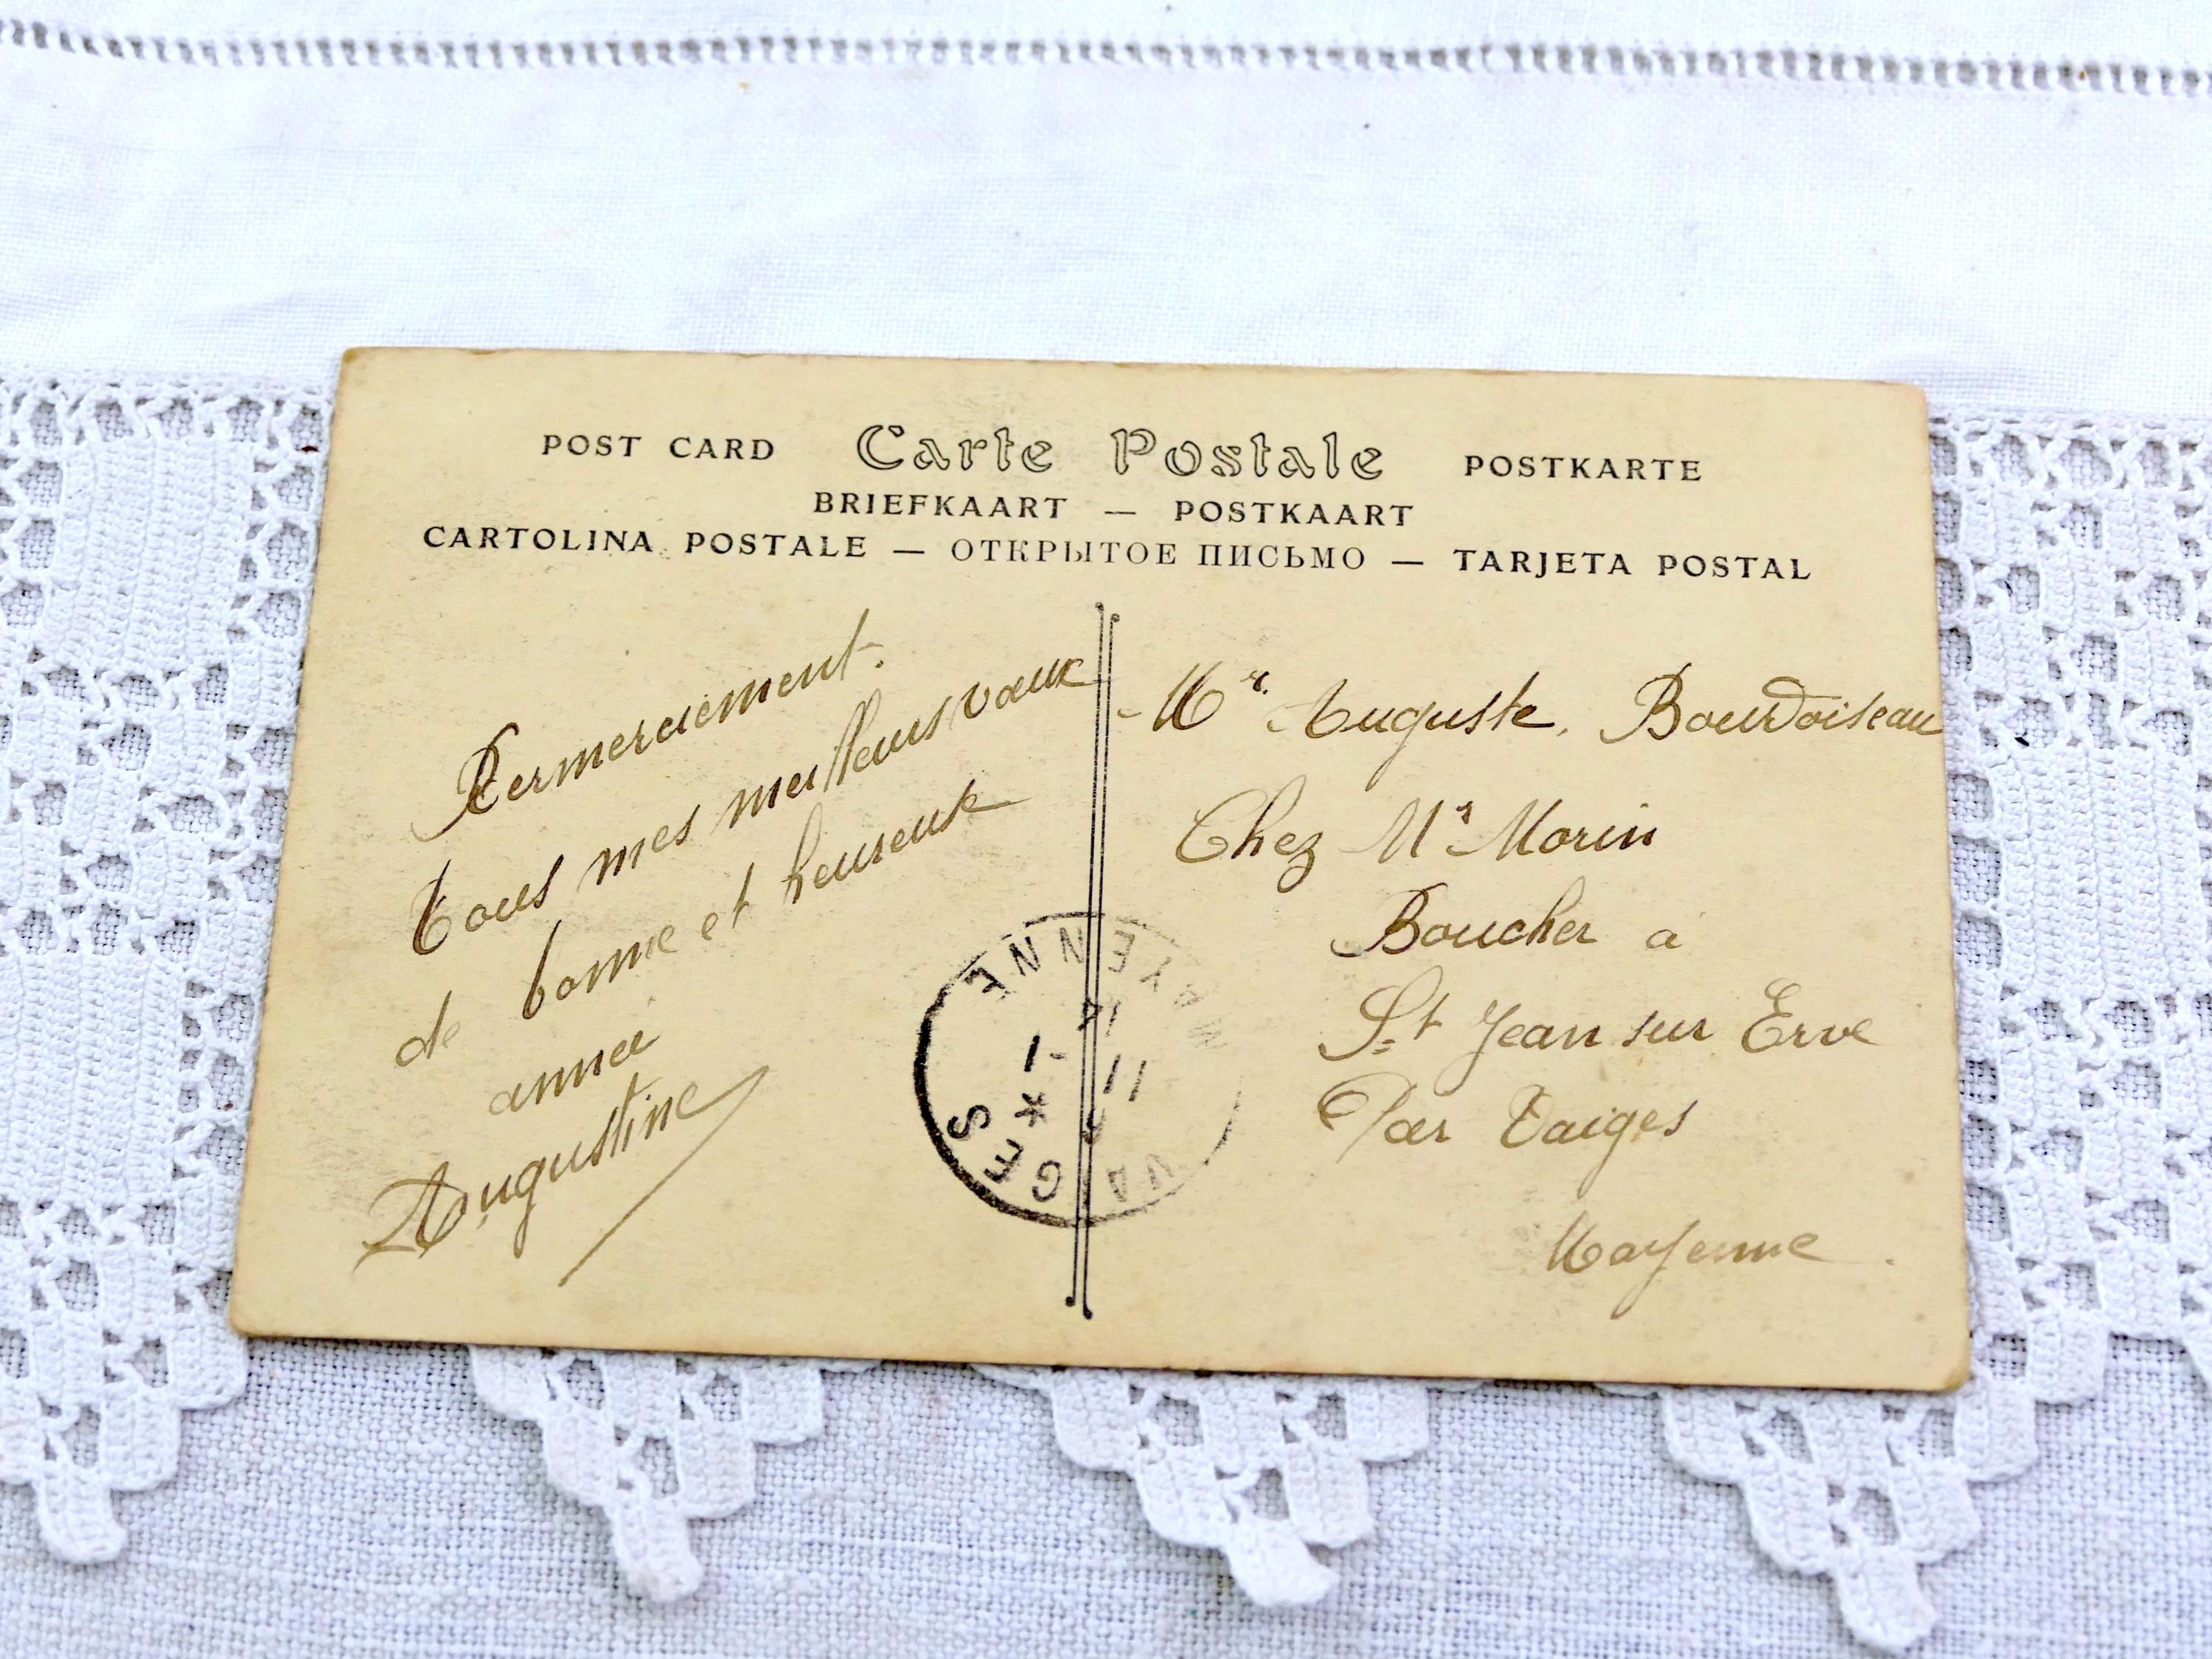 POST CARD Carte Postale POSTKARTE
BRIEFKAART — POSTKAART
CARTOLINA POSTALE — ОТКРЫТОЕ ПИСЬМО — TARJETA POSTAL
Rermerciement.
Tous mes meilleurs vœux
de bonne et heureuse
année
Augustine
Mr. Auguste. Bourdoiseau
Chez Mr Morin
Boucher a
St Jean sur Erve
Par Vaiges
Mayenne.
MAYENNE
11 -1
14
VAIGES *